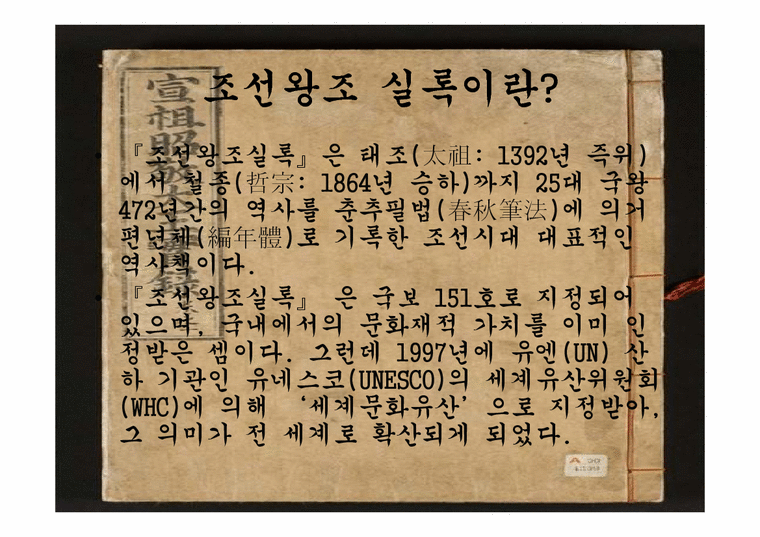 조선왕조 실록이란?
『조선왕조실록』은 태조(太祖: 1392년 즉위)
에서 철종(哲宗: 1864년 승하)까지 25대 국왕
472년간의 역사를 춘추필법(春秋筆法)에 의거
편년체(編年體)로 기록한 조선시대 대표적인
역사책이다.
『조선왕조실록』 은 국보 151호로 지정되어
있으며, 국내에서의 문화재적 가치를 이미 인
정받은 셈이다. 그런데 1997년에 유엔(UN) 산
하 기관인 유네스코(UNESCO)의 세계유산위원회
(WHC)에 의해 ‘세계문화유산’으로 지정받아,
그 의미가 전 세계로 확산되게 되었다.
宣祖昭敬大王實錄